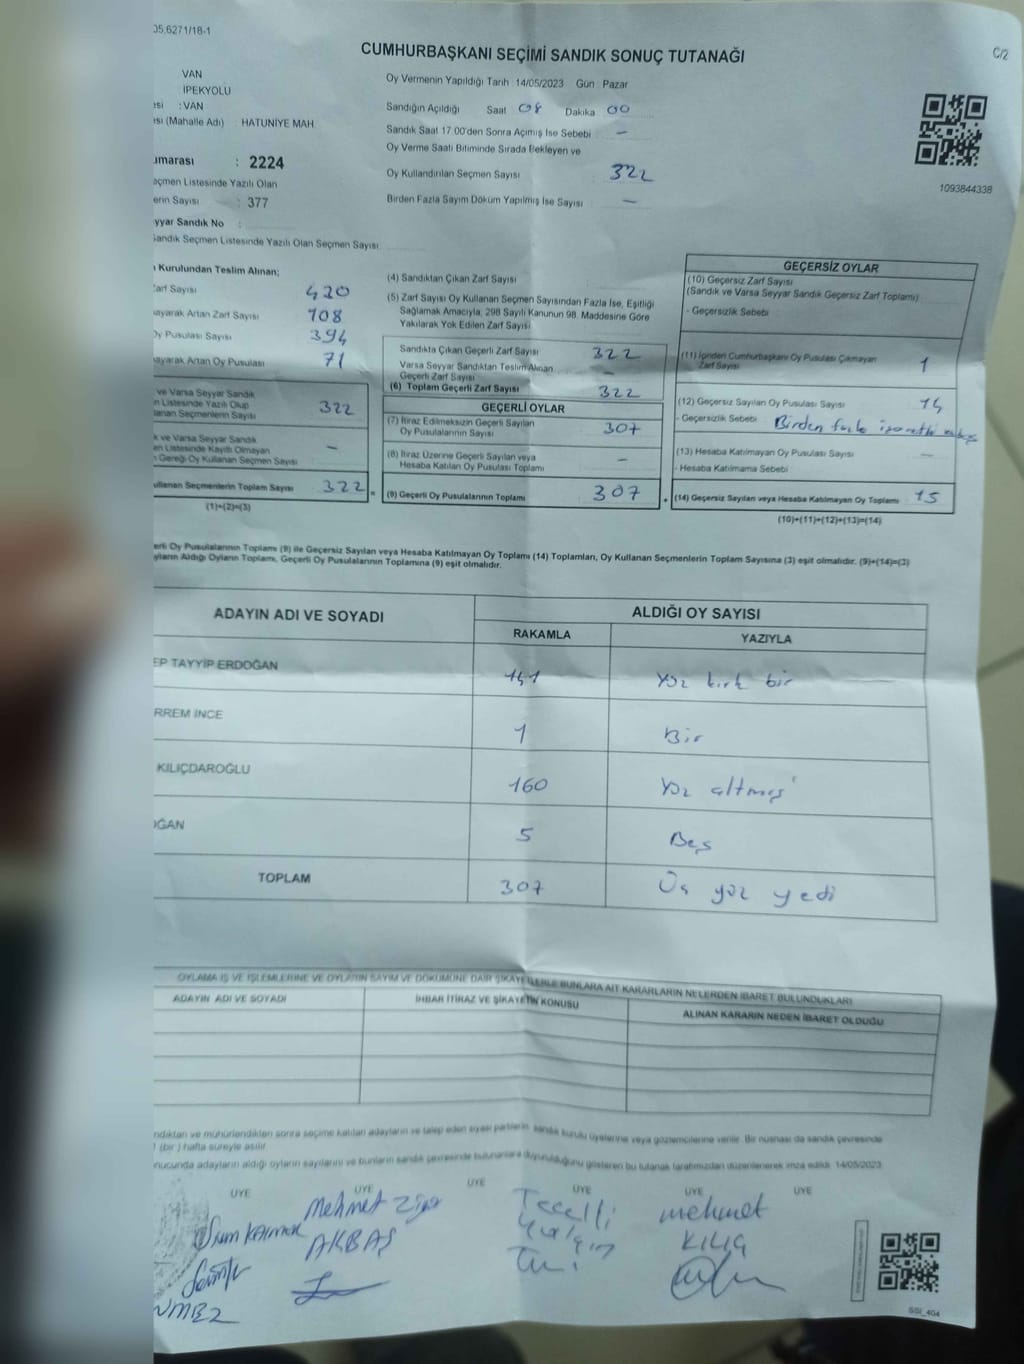 05.6271/18-1
CUMHURBAŞKANI SEÇİMİ SANDIK SONUÇ TUTANAĞI
C/2
VAN
İPEKYOLU
esi : VAN
esi (Mahalle Adı) HATUNİYE MAH
umarası : 2224
eçmen Listesinde Yazılı Olan
enin Sayısı : 377
eyyar Sandık No :
Sandık Seçmen Listesinde Yazılı Olan Seçmen Sayısı
Oy Vermenin Yapıldığı Tarih :14/05/2023 Gün : Pazar
Sandığın Açıldığı Saat 08 Dakika 00
Sandık Saat 17.00'den Sonra Açılmış İse Sebebi : -
Oy Verme Saati Bitiminde Sırada Bekleyen ve
Oy Kullandırılan Seçmen Sayısı 322
Birden Fazla Sayım Döküm Yapılmış İse Sayısı : -
1093844338
Kurulundan Teslim Alınan;
Zarf Sayısı 420
mayarak Artan Zarf Sayısı 108
Oy Pusulası Sayısı 394
mayarak Artan Oy Pusulası 71
ve Varsa Seyyar Sandık
n Listesinde Yazılı Olup
llanan Seçmenlerin Sayısı 322
k ve Varsa Seyyar Sandık
en Listesinde Kayıtlı Olmayan
Gereği Oy Kullanan Seçmen Sayısı -
ullanan Seçmenlerin Toplam Sayısı 322 =
(1)+(2)=(3)
(4) Sandıktan Çıkan Zarf Sayısı
(5) Zarf Sayısı Oy Kullanan Seçmen Sayısından Fazla İse, Eşitliği
Sağlamak Amacıyla, 298 Sayılı Kanunun 98. Maddesine Göre
Yakılarak Yok Edilen Zarf Sayısı
Sandıkta Çıkan Geçerli Zarf Sayısı 322
Varsa Seyyar Sandıktan Teslim Alınan
Geçerli Zarf Sayısı -
(6) Toplam Geçerli Zarf Sayısı 322
GEÇERLİ OYLAR
(7) İtiraz Edilmeksizin Geçerli Sayılan
Oy Pusulalarının Sayısı 307
(8) İtiraz Üzerine Geçerli Sayılan veya
Hesaba Katılan Oy Pusulası Toplamı -
(9) Geçerli Oy Pusulalarının Toplamı 307 +
GEÇERSİZ OYLAR
(10) Geçersiz Zarf Sayısı
(Sandık ve Varsa Seyyar Sandık Geçersiz Zarf Toplamı)
- Geçersizlik Sebebi
(11) İçinden Cumhurbaşkanı Oy Pusulası Çıkmayan
Zarf Sayısı 1
(12) Geçersiz Sayılan Oy Pusulası Sayısı 14
- Geçersizlik Sebebi Birden fazla
(13) Hesaba Katılmayan Oy Pusulası Sayısı -
- Hesaba Katılmama Sebebi
(14) Geçersiz Sayılan veya Hesaba Katılmayan Oy Toplamı 15
(10)+(11)+(12)+(13)=(14)
erli Oy Pusulalarının Toplamı (9) ile Geçersiz Sayılan veya Hesaba Katılmayan Oy Toplamı (14) Toplamları, Oy Kullanan Seçmenlerin Toplam Sayısına (3) eşit olmalıdır. (9)+(14)=(3)
yların Aldığı Oyların Toplamı, Geçerli Oy Pusulalarının Toplamına (9) eşit olmalıdır.
ADAYIN ADI VE SOYADI ALDIĞI OY SAYISI
RAKAMLA YAZIYLA
EP TAYYİP ERDOĞAN 141 Yüz kırk bir
RREM İNCE 1 Bir
KILIÇDAROĞLU 160 Yüz altmış
OĞAN 5 Beş
TOPLAM 307 Üç yüz yedi
OYLAMA İŞ VE İŞLEMLERİNE VE OYLARIN SAYIM VE DÖKÜMÜNE DAİR ŞİKAYETLERLE BUNLARA AİT KARARLARIN NELERDEN İBARET BULUNDUKLARI
ADAYIN ADI VE SOYADI İHBAR İTİRAZ VE ŞİKAYETİN KONUSU ALINAN KARARIN NEDEN İBARET OLDUĞU
ndıktan ve mühürlendikten sonra seçime katılan adayların ve talep eden siyasi partilerin sandık kurulu üyelerine veya gözlemcilerine verilir. Bir nüshası da sandık çevresinde
1 (bir) hafta süreyle asılır.
nucunda adayların aldığı oyların sayılarını ve bunların sandık çevresinde bulunanlara duyurulduğunu gösteren bu tutanak tarafımızdan düzenlenerek imza edildi. 14/05/2023
ÜYE ÜYE ÜYE ÜYE ÜYE ÜYE
Mehmet Ziya
AKBAŞ
Tecelli
Yalçın
Mehmet
KILIÇ
SSİ_404